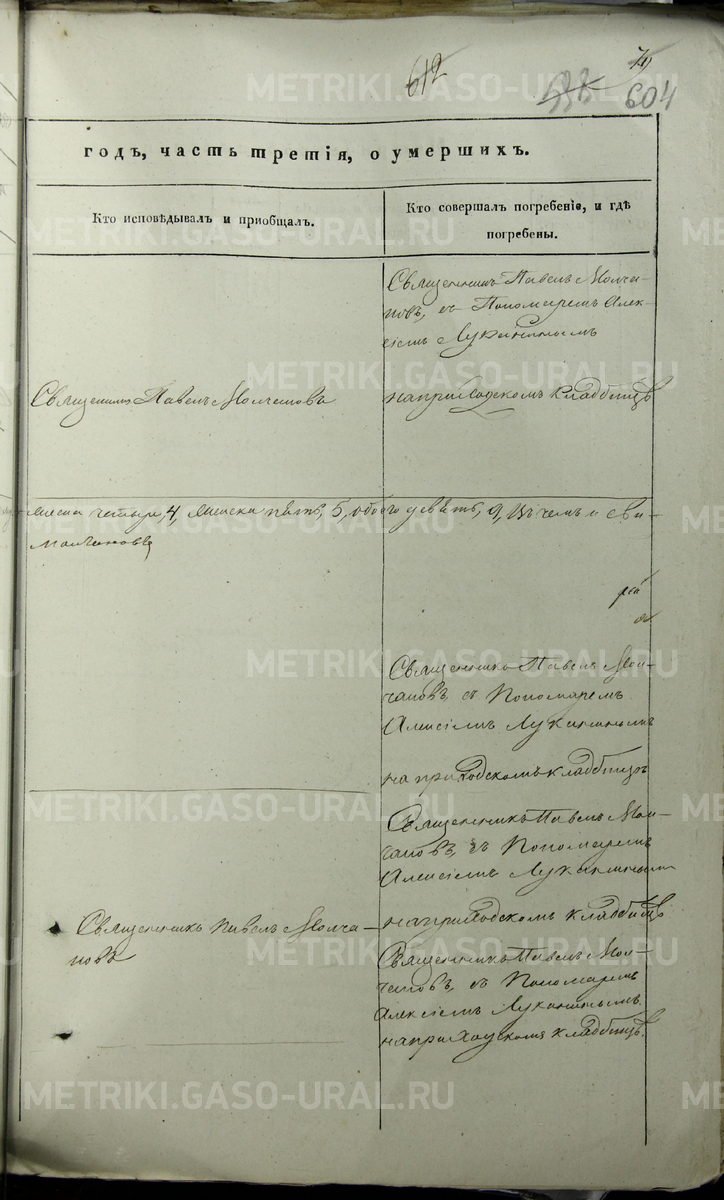 612
604
годъ, часть третія, о умершихъ.
Кто исповѣдывалъ и приобщалъ.
Кто совершалъ погребеніе, и гдѣ
погребены.
Священникъ Павелъ Молча-
новъ, съ Пономаремъ Алек-
сіемъ Луканинымъ
Священникъ Павелъ Молчановъ
на приходскомъ кладбищѣ
четыре, 4, женска пять, 5, обоего девять, 9, въ чемъ и сви-
Молчановъ
Священникъ Павелъ Мол-
чановъ съ Пономаремъ
Алексіемъ Луканинымъ
на приходскомъ кладбищѣ
Священникъ Павелъ Мол-
чановъ, съ Пономаремъ
Алексіемъ Луканинымъ
на приходскомъ кладбищѣ
Священникъ Павелъ Молча-
новъ
Священникъ Павелъ Мол-
чановъ, съ Пономаремъ
Алексіемъ Луканинымъ
на приходскомъ кладбищѣ.
METRIKI.GASO-URAL.RU